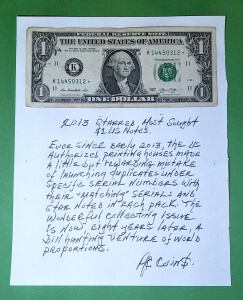 FEDERAL RESERVE NOTE
THE UNITED STATES OF AMERICA
K 14450312 *
K 14450312 *
ONE DOLLAR
2013 STARRED MOST SOUGHT
$1 US NOTES.
EVER SINCE EARLY 2013, THE US
AUTHORIZED PRINTING HOUSES MADE
A LITTLE BUT REWARDING MISTAKE
OF LAUNCHING DUPLICATES UNDER
SPECIFIC SERIAL NUMBERS WITH
THEIR "MATCHING" SERIALS AND
STAR NOTES IN EACH PACK. THE
WONDERFUL COLLECTING ISSUE
IS NOW, EIGHT YEARS LATER, A
BILL HUNTING VENTURE OF WORLD
PROPORTIONS.
COIN$.